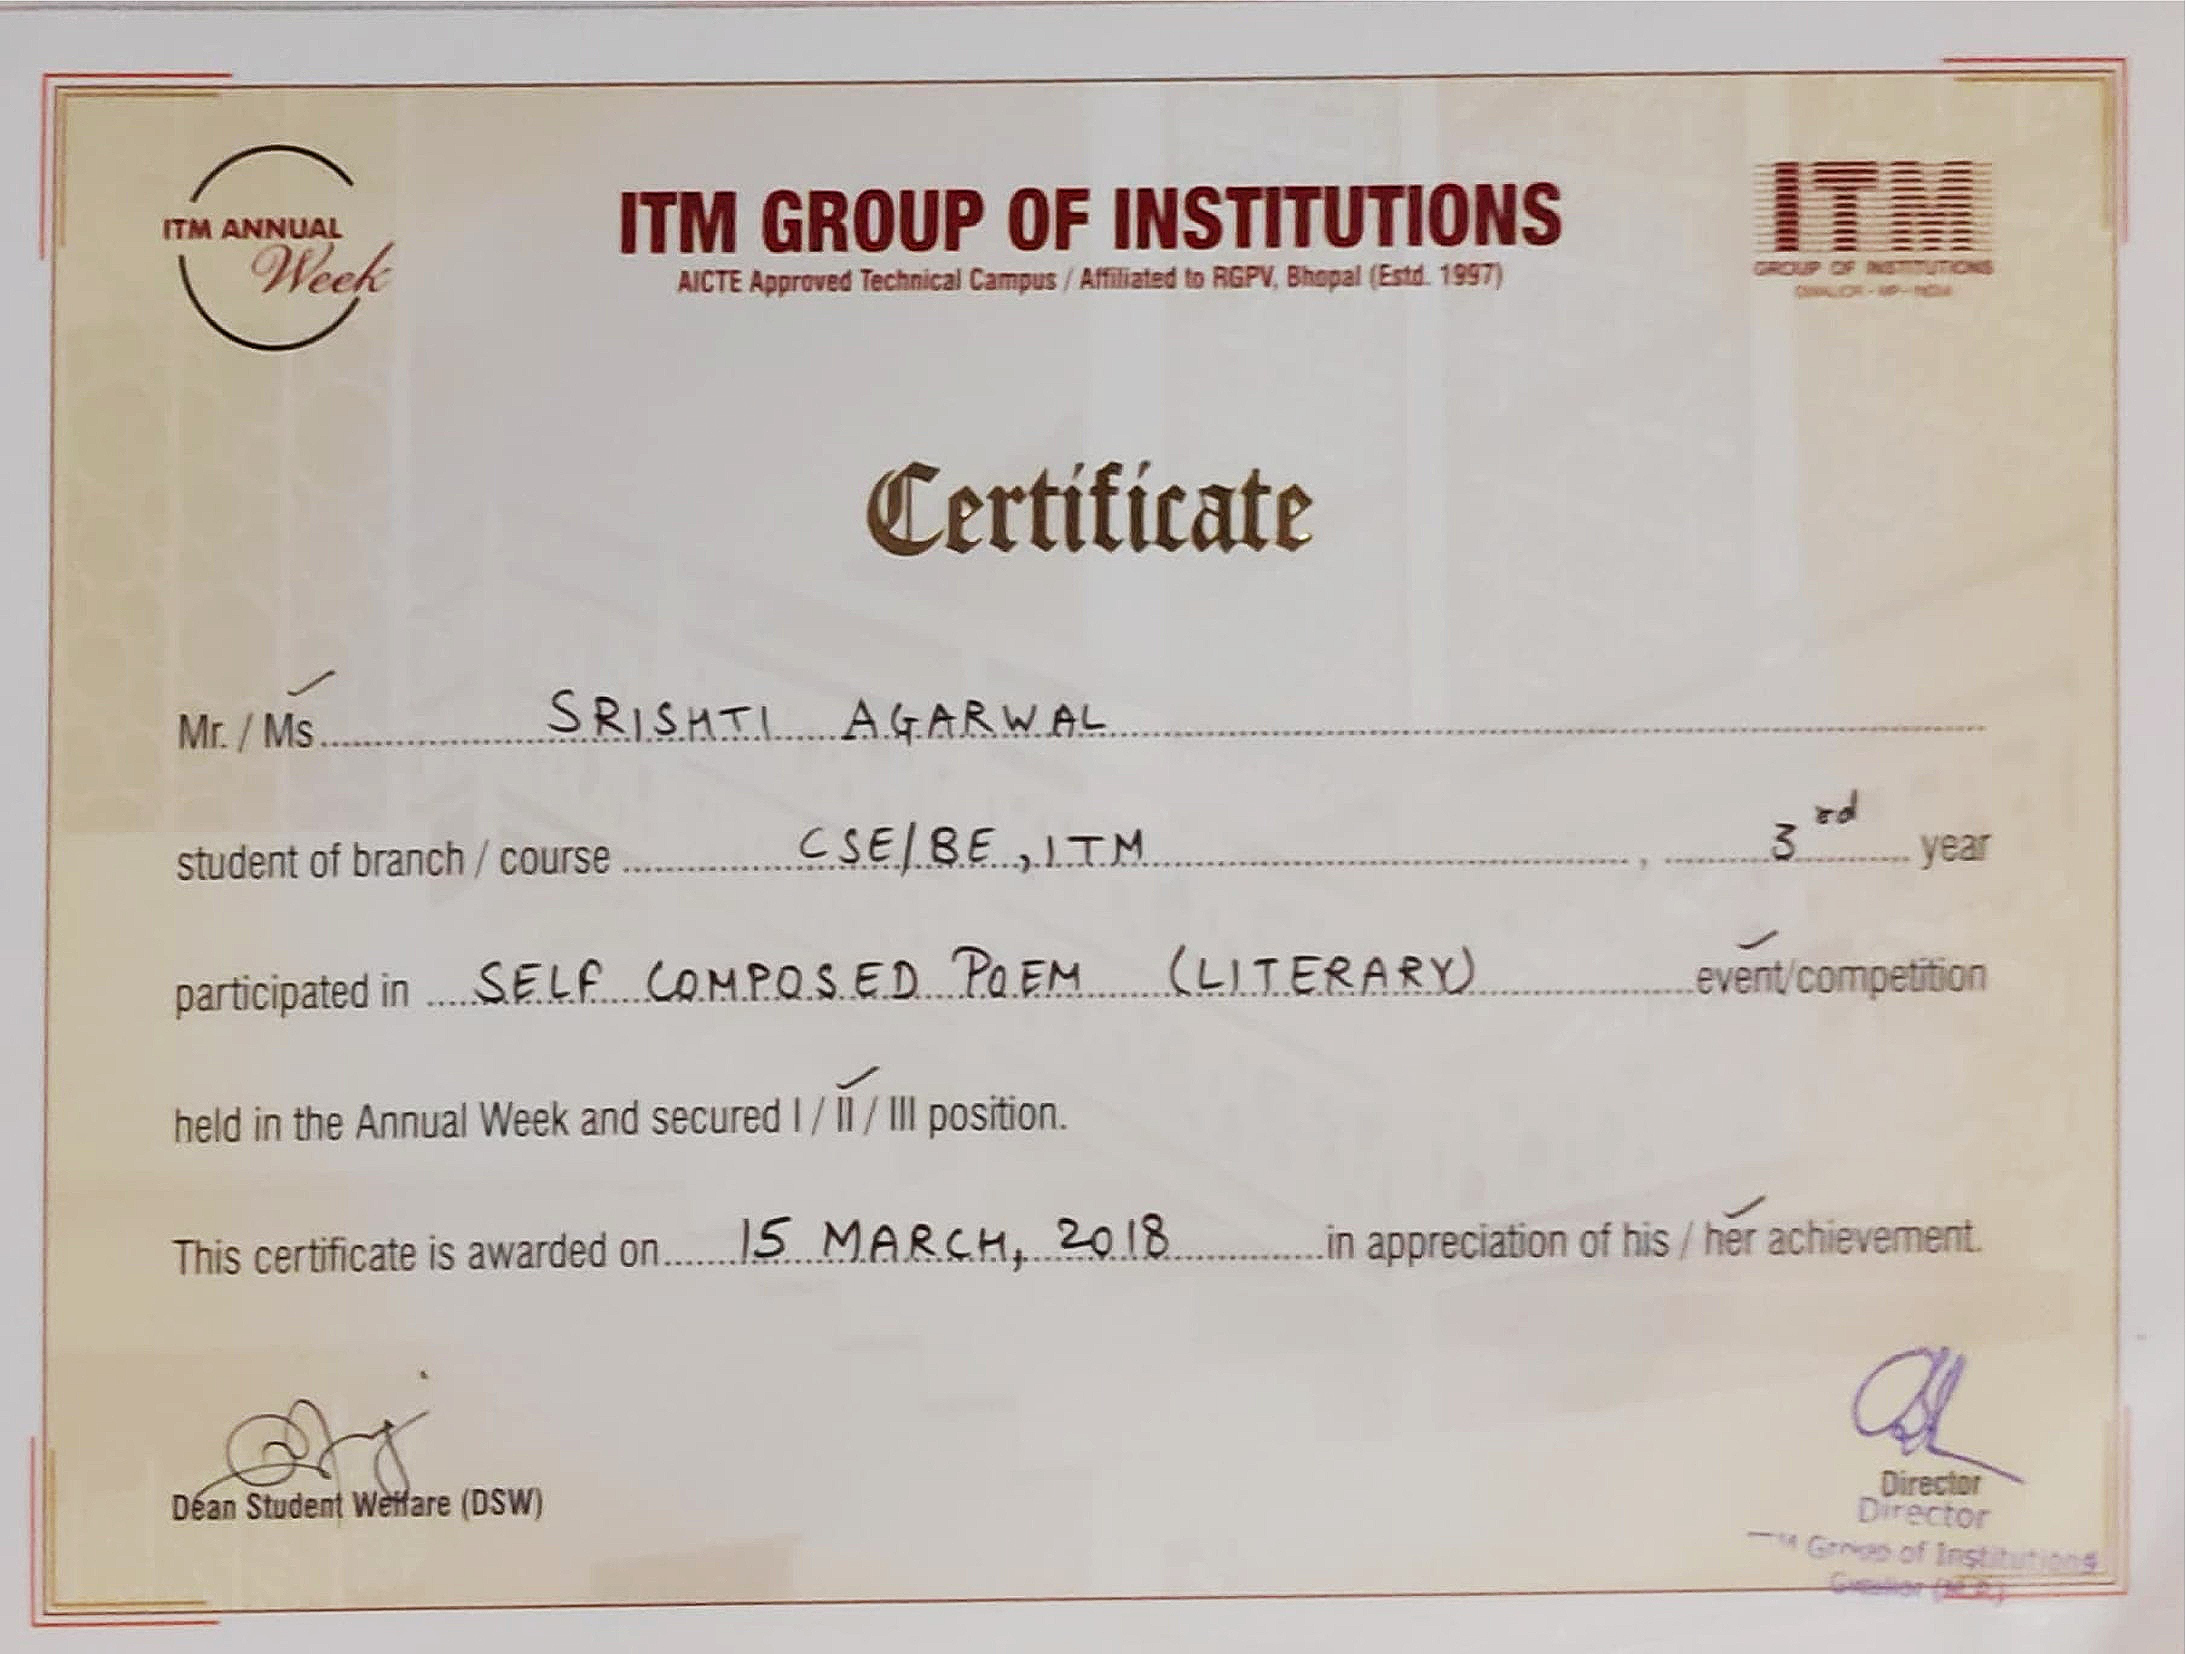 ITM ANNUAL
Week
ITM GROUP OF INSTITUTIONS
AICTE Approved Technical Campus / Affiliated to RGPV, Bhopal (Estd. 1997)
ITM
GROUP OF INSTITUTIONS
GWALIOR - MP - INDIA
Certificate
Mr. / Ms SRISHTI AGARWAL
student of branch / course CSE/BE, ITM , 3rd year
participated in SELF COMPOSED POEM (LITERARY) event/competition
held in the Annual Week and secured I / II / III position.
This certificate is awarded on 15 MARCH, 2018 in appreciation of his / her achievement.
Dean Student Welfare (DSW)
Director
Director
Group of Institutions
Gwalior (M.P.)